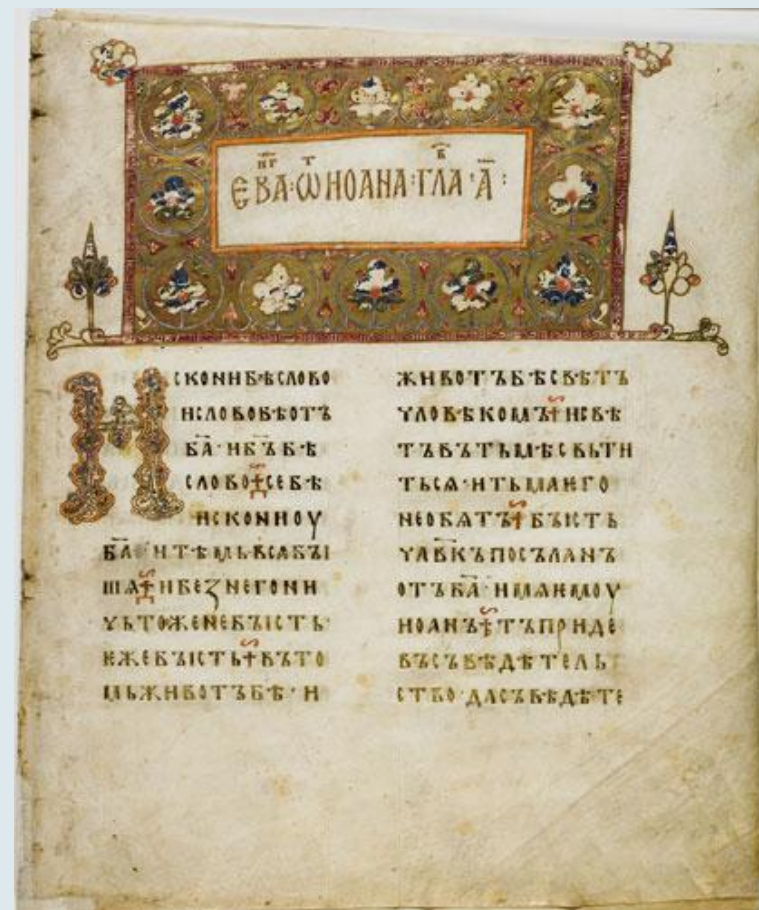 ЕВАⷩ҇ⷢ҇:Ѡⷮ ИОАНА:ГЛАⷡ҇·А҃:
ИСКОНИБѢСЛОВО
ИСЛОВОБѢОТЪ
БА҃·ИБ҃ЪБѢ
СЛОВО СЕБѢ
ИСКОНИОУ
БА҃·ИТѢМЬВЬСѦБЪІ
ШѦ ИБЕЗНЕГОНИ
ЧЬТОЖЕНЕБЪІСТЬ·
ЕЖЕБЪІСТЬ ВЪТО
МЬЖИВОТЪБѢ·И
ЖИВОТЪБѢСВѢТЪ
ЧЛОВѢКОМЪ ИСВѢ
ТЪВЪТЬМѢСВЬТИ
ТЬСѦ·ИТЬМАИЕГО
НЕОБѦТЪ БЪІСТЬ
ЧЛВ҃КЪПОСЪЛАНЪ
ОТЪБА҃·ИМѦЕМОУ
ИОАНЪ ТЪПРИДЕ
ВЪСЪВѢДѢТЕЛЬ
СТВО·ДАСЪВѢДѢТЕ